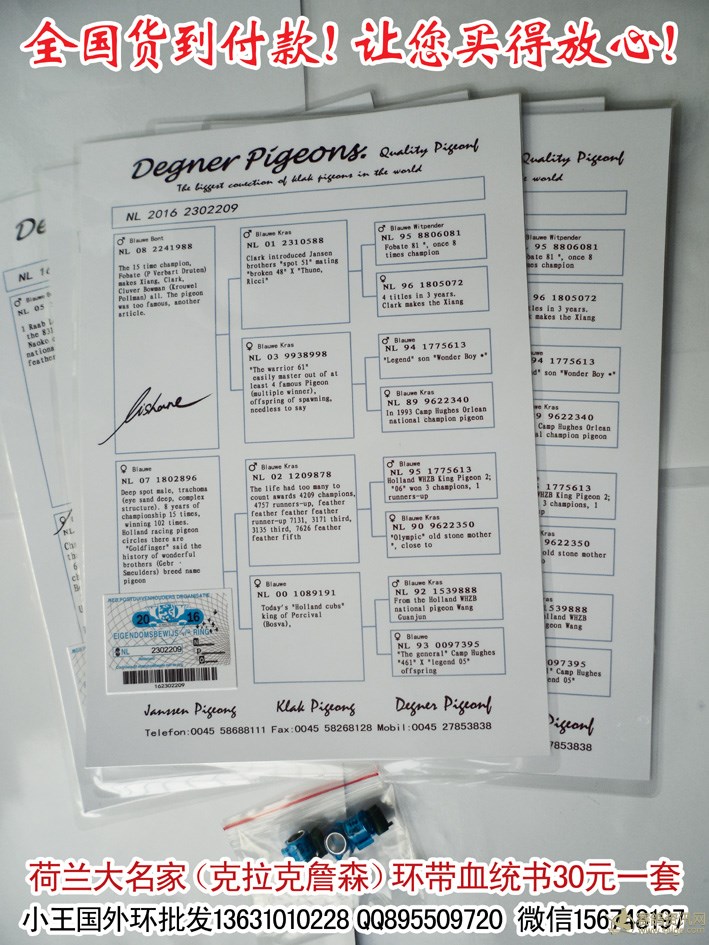 全国货到付款！让您买得放心！
Degner Pigeons. Quality Pigeonf
The biggest couection of klak pigeons in the world
NL 2016 2302209
♂ Blauwe Bont
NL 08 2241988
The 15 time champion,
Fobate (P Verbart Druten)
makes Xiang, Clark,
Cluver Bowman (Krouwel
Pollman) all. The pigeon
was too famous, another
article.
♀ Blauwe
NL 07 1802896
Deep spot male, trachoma
(eye sand deep, complex
structure). 8 years of
championship 15 times,
winning 102 times.
Holland racing pigeon
circles there are
"Goldfinger" said the
history of wonderful
brothers (Gebr -
Smeulders) breed name
pigeon
♂ Blauwe Kras
NL 01 2310588
Clark introduced Jansen
brothers "spot 51" mating
"broken 48" X "Thune,
Ricci"
♀ Blauwe Kras
NL 03 9938998
"The warrior 61"
easily master out of at
least 4 famous Pigeon
(multiple winner),
offspring of spawning,
needless to say
♂ Blauwe Kras
NL 02 1209878
The life had too many to
count awards 4209 champions,
4757 runners-up, feather
feather feather feather
runner-up 7131, 3171 third,
3135 third, 7626 feather
feather fifth
♀ Blauwe
NL 00 1089191
Today's "Holland cubs"
king of Percival
(Bosva),
♂ Blauwe Witpender
NL 95 8806081
Fobate 81 °, once 8
times champion
♀
NL 96 1805072
4 titles in 3 years.
Clark makes the Xiang
♂ Blauwe
NL 94 1775613
"Legend" son "Wonder Boy *"
♀ Blauwe Kras
NL 89 9622340
In 1993 Camp Hughes Orlean
national champion pigeon
♂ Blauwe Kras
NL 95 1775613
Holland WHZB King Pigeon 2;
"06" won 3 champions, 1
runners-up
♀ Blauwe Kras
NL 90 9622350
"Olympic" old stone mother
", close to
♂ Blauwe Kras
NL 92 1539888
From the Holland WHZB
national pigeon Wang
Guanjun
♀ Blauwe
NL 93 0097395
"The general" Camp Hughes
"461" X "legend 05"
offspring
20 16
EIGENDOMSBEWIJS v/e RING
NL 2302209
162302209
Janssen Pigeong Klak Pigeong Degner Pigeonf
Telefon:0045 58688111 Fax:0045 58268128 Mobil:0045 27853838
Quality Pigeonf
e world
Blauwe Witpender
95 8806081
bate 81 °, once 8
es champion
96 1805072
itles in 3 years.
rk makes the Xiang
94 1775613
end" son "Wonder Boy *"
we Kras
9 9622340
Camp Hughes Orlean
l champion pigeon
we Kras
1775613
WHZB King Pigeon 2;
3 champions, 1
9622350
old stone mother
1539888
Holland WHZB
pigeon Wang
0097395
Camp Hughes
end 05"
Pigeonf
7853838
荷兰大名家（克拉克詹森）环带血统书30元一套
小王国外环批发13631010228 QQ895509720